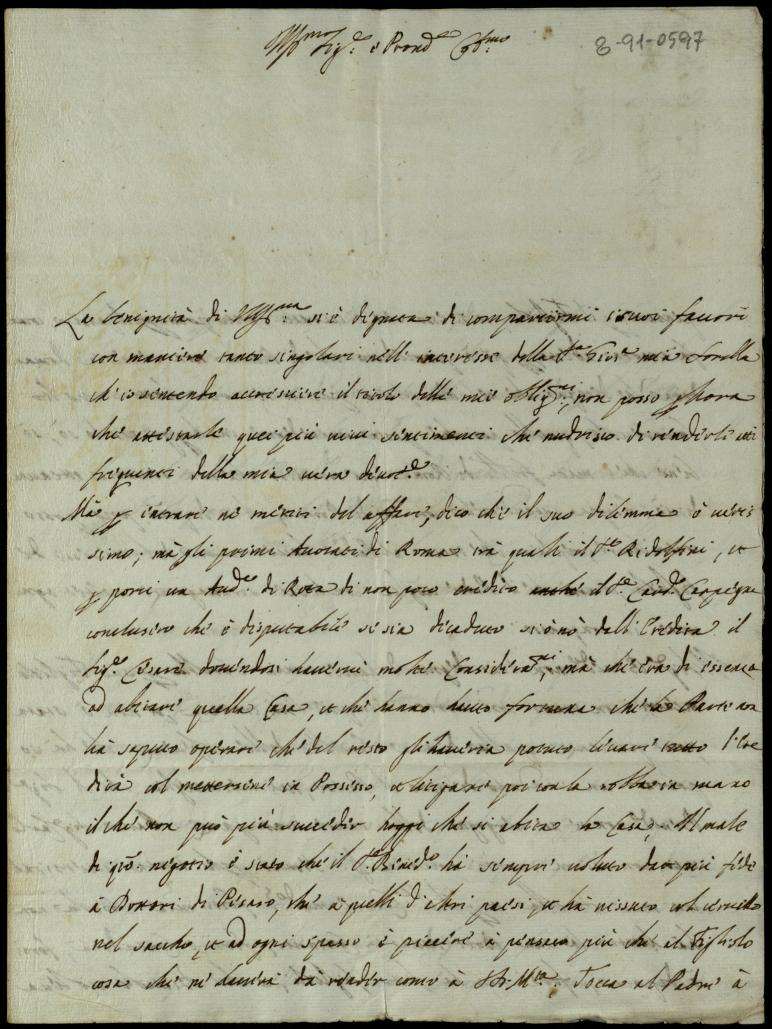 Sig.re e Pron.
8-91-0597
La benignità di V.S. Ill.ma si è dignata di compartirmi i suoi fauori
con maniere tanto singolari nell' interesse della mia Sorella
ch' io sentendo accrescere il titolo delle mie oblig.ni, non posso p hora
che attestarle quei più uiui sentimenti che nudrisco di renderle atti
frequenti della mia uera diuot.e
Mà p entrare ne meriti del affare, dico che il suo dilemma è ueris
simo; mà gli primi Auocati di Roma trà quali il S.re Ridolfini, et
p porci un Aud.re di Rota di non poco credito anche il S.re Card.e Carpegna
conclusero che è disputabile se sia dicaduto si ò nò dall' Eredità il
Sig.re Cesare douendosi hauerui molte Considerat.ni, mà che era di essenza
ad abitare quella Casa, et che hanno hauto fortuna che la Parte non
hà saputo operare che del resto gli haueria potuto leuare tutto l'Ere
dità col mettersene in Possesso, et litigare poi con la robba in mano
il che non può più succeder hoggi che si abita la Casa. Il male
di q.to negotio è stato che il S.re Bened.o hà sempre uoluto dar più fede
à Dottori di Pesaro, che à quelli d'altri paesi, et hà uissuto col ceruello
nel saccho, et ad ogni spasso è piacere à pensato più che al Figliolo
cosa che ne hauerà dà render conto à Tocca al Padre à